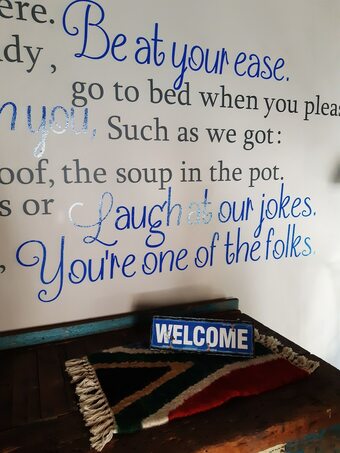 ere.
Be at your ease.
dy,
go to bed when you pleas
n you, Such as we got:
oof, the soup in the pot.
s or Laugh at our jokes.
, You're one of the folks.
WELCOME